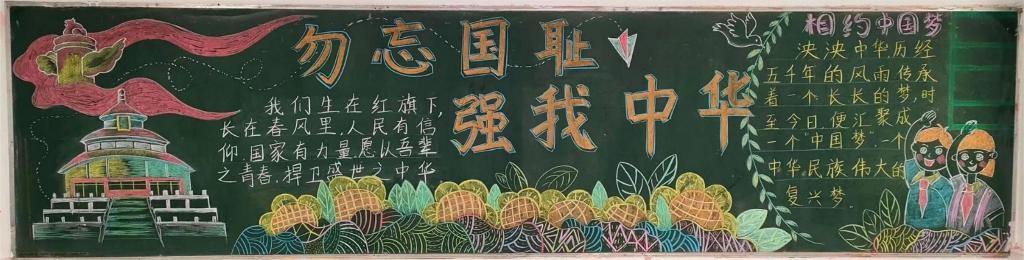 勿忘国耻
强我中华
我们生在红旗下,
长在春风里,人民有信
仰国家有力量愿以吾辈
之青春,捍卫盛世之中华
相约中国梦
泱泱中华历经
五千年的风雨传承
着一个长长的梦,时
至今日,便汇聚成
一个"中国梦",一个
中华民族伟大的
复兴梦.